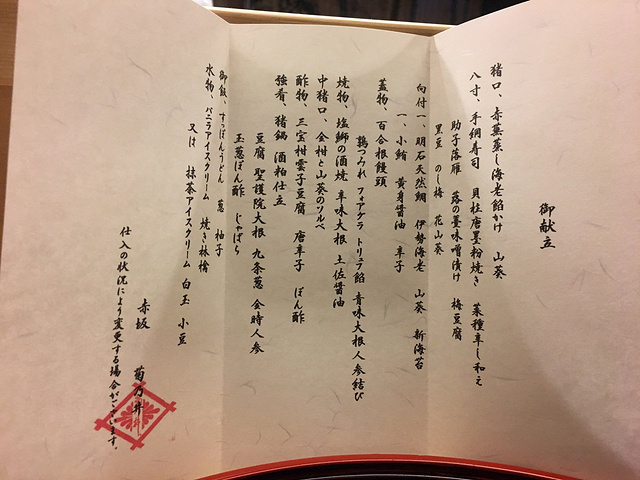 御献立
猪口、赤蕪蒸し海老餡かけ 山葵
八寸、手綱寿司 貝柱唐墨粉焼き 菜種辛し和え
助子落雁 蕗の薹味噌漬け 梅豆腐
黒豆 のし梅 花山葵
向付一、明石天然鯛 伊勢海老 山葵 新海苔
一、小鮪 黄身醤油 辛子
蓋物、百合根饅頭
鶉つみれ フォアグラ トリュフ餡 青味大根人参結び
焼物、塩鰤の酒焼 辛味大根 土佐醤油
中猪口、金柑と山葵のソルベ
酢物、三宝柑雲子豆腐 唐辛子 ぽん酢
強肴、猪鍋 酒粕仕立
豆腐 聖護院大根 九条葱 金時人参
玉葱ぽん酢 じゃばら
御飯、すっぽんうどん 葱 柚子
水物、バニラアイスクリーム 焼き林檎
又は 抹茶アイスクリーム 白玉 小豆
赤坂 菊乃井
仕入の状況により変更する場合がございます。